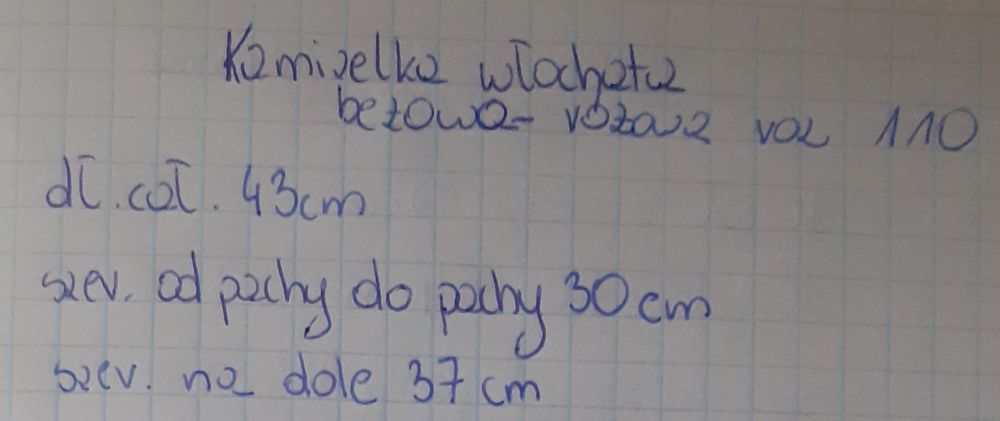 Kamizelka włochata
beżowa-różowa roz 110
dł. cał. 43cm
szer. od pachy do pachy 30 cm
szer. na dole 37 cm